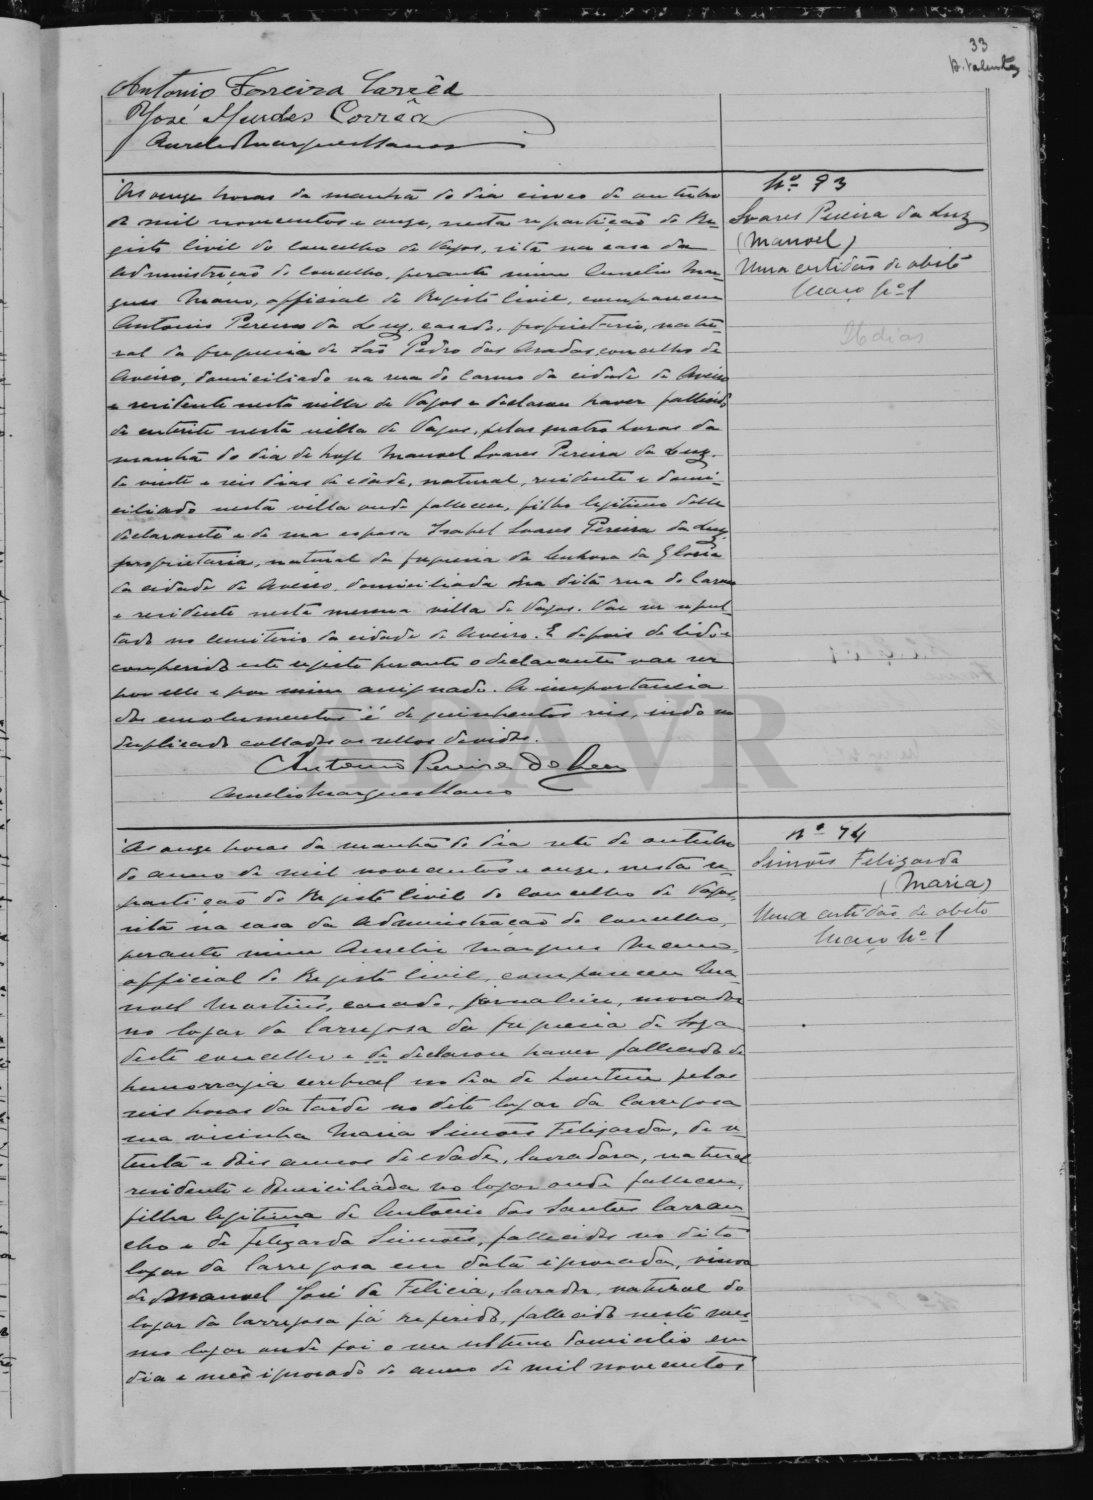 33
Antonio Ferreira Corrêa
José Mendes Corrêa
Aurelio Marques Mano
Nº 93
Soares Pereira da Luz
(Manoel)
Uma certidão de obito
Maço Nº 1
26 dias
As onze horas da manhã do dia cinco de outubro
de mil novecentos e onze, nesta repartição do Re-
gisto Civil do concelho de Vagos, sita na casa da
Administração do concelho, perante mim Aurelio Mar-
ques Mano, official do Registo Civil, compareceu
Antonio Pereira da Luz, casado, proprietario, natu-
ral da freguesia de São Pedro das Aradas, concelho de
Aveiro, domiciliado na rua do Carmo da cidade de Aveiro
e residente nesta villa de Vagos e declarou haver fallecido
de enterite nesta villa de Vagos, pelas quatro horas da
manhã do dia de hoje Manoel Soares Pereira da Luz,
de vinte e seis dias de edade, natural, residente e domi-
ciliado nesta villa onde falleceu, filho legitimo delle
declarante e de sua esposa Isabel Soares Pereira da Luz,
proprietaria, natural da freguesia da Senhora da Gloria
da cidade de Aveiro, domiciliada na dita rua do Carmo
e residente nesta mesma villa de Vagos. Vae ser sepul-
tado no cemiterio da cidade de Aveiro. E depois de lido e
conferido este registo perante o declarante vae ser
por elle e por mim assignado. A importancia
dos emolumentos é de quinhentos reis, indo no
duplicado collados os sellos devidos.
Antonio Pereira da Luz
Aurelio Marques Mano
Nº 74
Simões Felizarda
(Maria)
Uma certidão de obito
Maço Nº 1
As onze horas da manhã do dia sete de outubro
do anno de mil novecentos e onze, nesta re-
partição do Registo Civil do concelho de Vagos,
sita na casa da Administração do concelho,
perante mim Aurelio Marques Mano,
official do Registo Civil, compareceu Ma-
noel Martins, casado, jornaleiro, morador
no logar da Carregosa da freguesia de Soza
deste concelho e de declarou haver fallecido de
hemorragia cerebral no dia de hontem pelas
seis horas da tarde no dito logar da Carregosa
sua visinha Maria Simões Felizarda, de se-
tenta e dois annos de edade, lavradora, natural
residente e domiciliada no logar onde falleceu,
filha legitima de Antonio dos Santos Carran-
cho e de Felizarda Simões, fallecidos no dito
logar da Carregosa em data ignorada, viuva
de Manoel José da Felicia, lavrador, natural do
logar da Carregosa já referido, fallecido neste mes-
mo logar onde foi o seu ultimo domicilio em
dia e mês ignorado do anno de mil novecentos
ADAVR